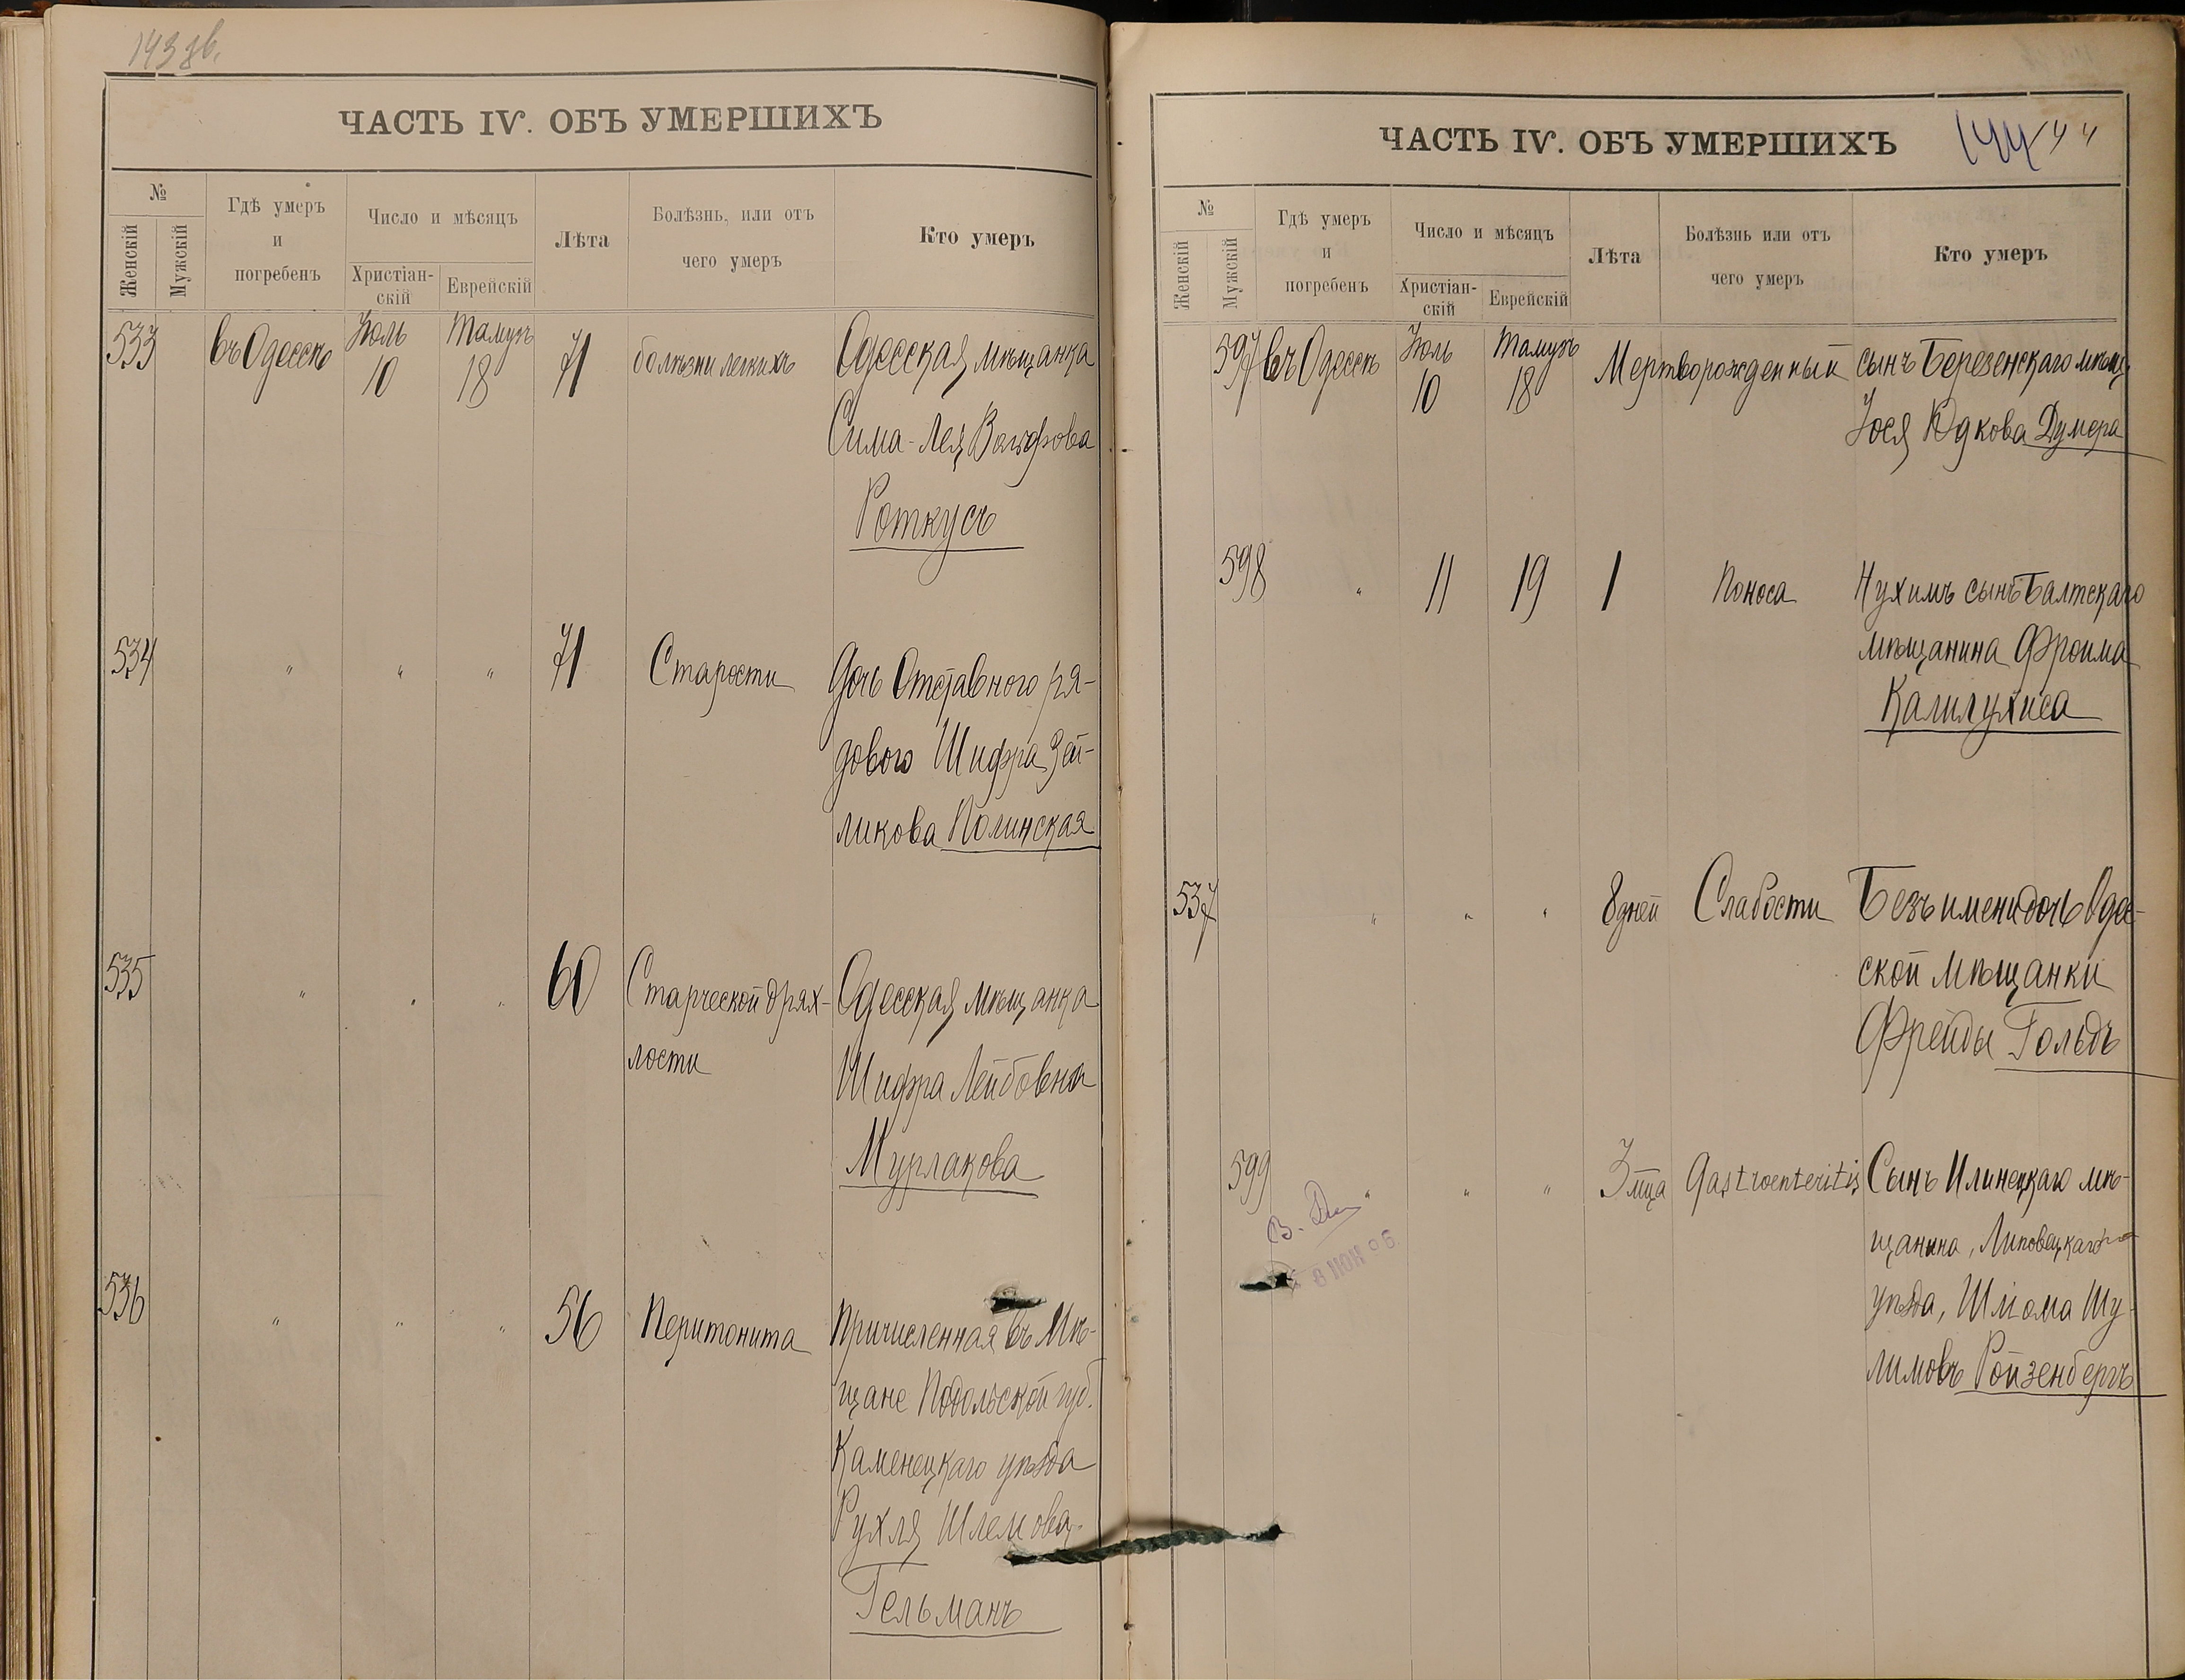 143 об.
ЧАСТЬ IV. ОБЪ УМЕРШИХЪ
№
Женскій
Мужскій
Гдѣ умеръ
и
погребенъ
Число и мѣсяцъ
Христіан-
скій
Еврейскій
Лѣта
Болѣзнь, или отъ
чего умеръ
Кто умеръ
533 въ Одессѣ Іюль Тамузъ 71 болѣзни легкихъ Одесская мѣщанка
10 18
Сима-Лея Вольфова
Роткусъ
534 " " " 71 Старости Дочь Отставного ря-
дового Шифра Зей-
ликова Полинская
535 " " " 60 Старческой дрях- Одесская мѣщанка
лости Шифра Лейбовна
Мурлакова
536 " " " 56 Перитонита Причисленная въ мѣ-
щане Подольской губ.
Каменецкаго уѣзда
Рухля Шлемова
Гельманъ
ЧАСТЬ IV. ОБЪ УМЕРШИХЪ
144 144
№
Женскій
Мужскій
Гдѣ умеръ
и
погребенъ
Число и мѣсяцъ
Христіан-
скій
Еврейскій
Лѣта
Болѣзнь или отъ
чего умеръ
Кто умеръ
597 въ Одессѣ Іюль Тамузъ Мертворожденный сынъ Березенскаго мѣщ.
10 18
Іося Юдкова Думера
598 " 11 19 1 Поноса Нухимъ сынъ Балтскаго
мѣщанина Фроима
Калилухиса
537 " " " 8 дней Слабости Безъ имени дочь Одес-
ской мѣщанки
Фрейды Гольдъ
599 " " " 3 м-ца Gastroenteritis Сынъ Илинецкаго мѣ-
щанина, Липовецкаго
уѣзда, Шлома Шу-
лимовъ Ройзенбергъ
8 ИЮН 06.